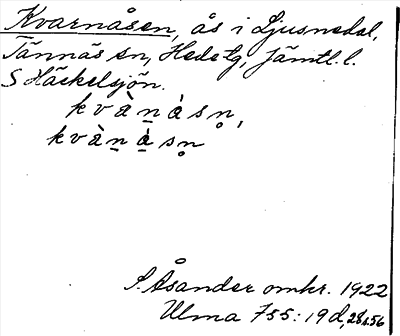 Kvarnåsen, ås i Ljusnedal,
Tännäs sn, Hede tg, Jämtl. l.
S Häckelsjön.
kvànàsn̥,
kvàn̠à̠sn̥
S. Åsander omkr. 1922
Ulma 755:19d, 28 s. 56